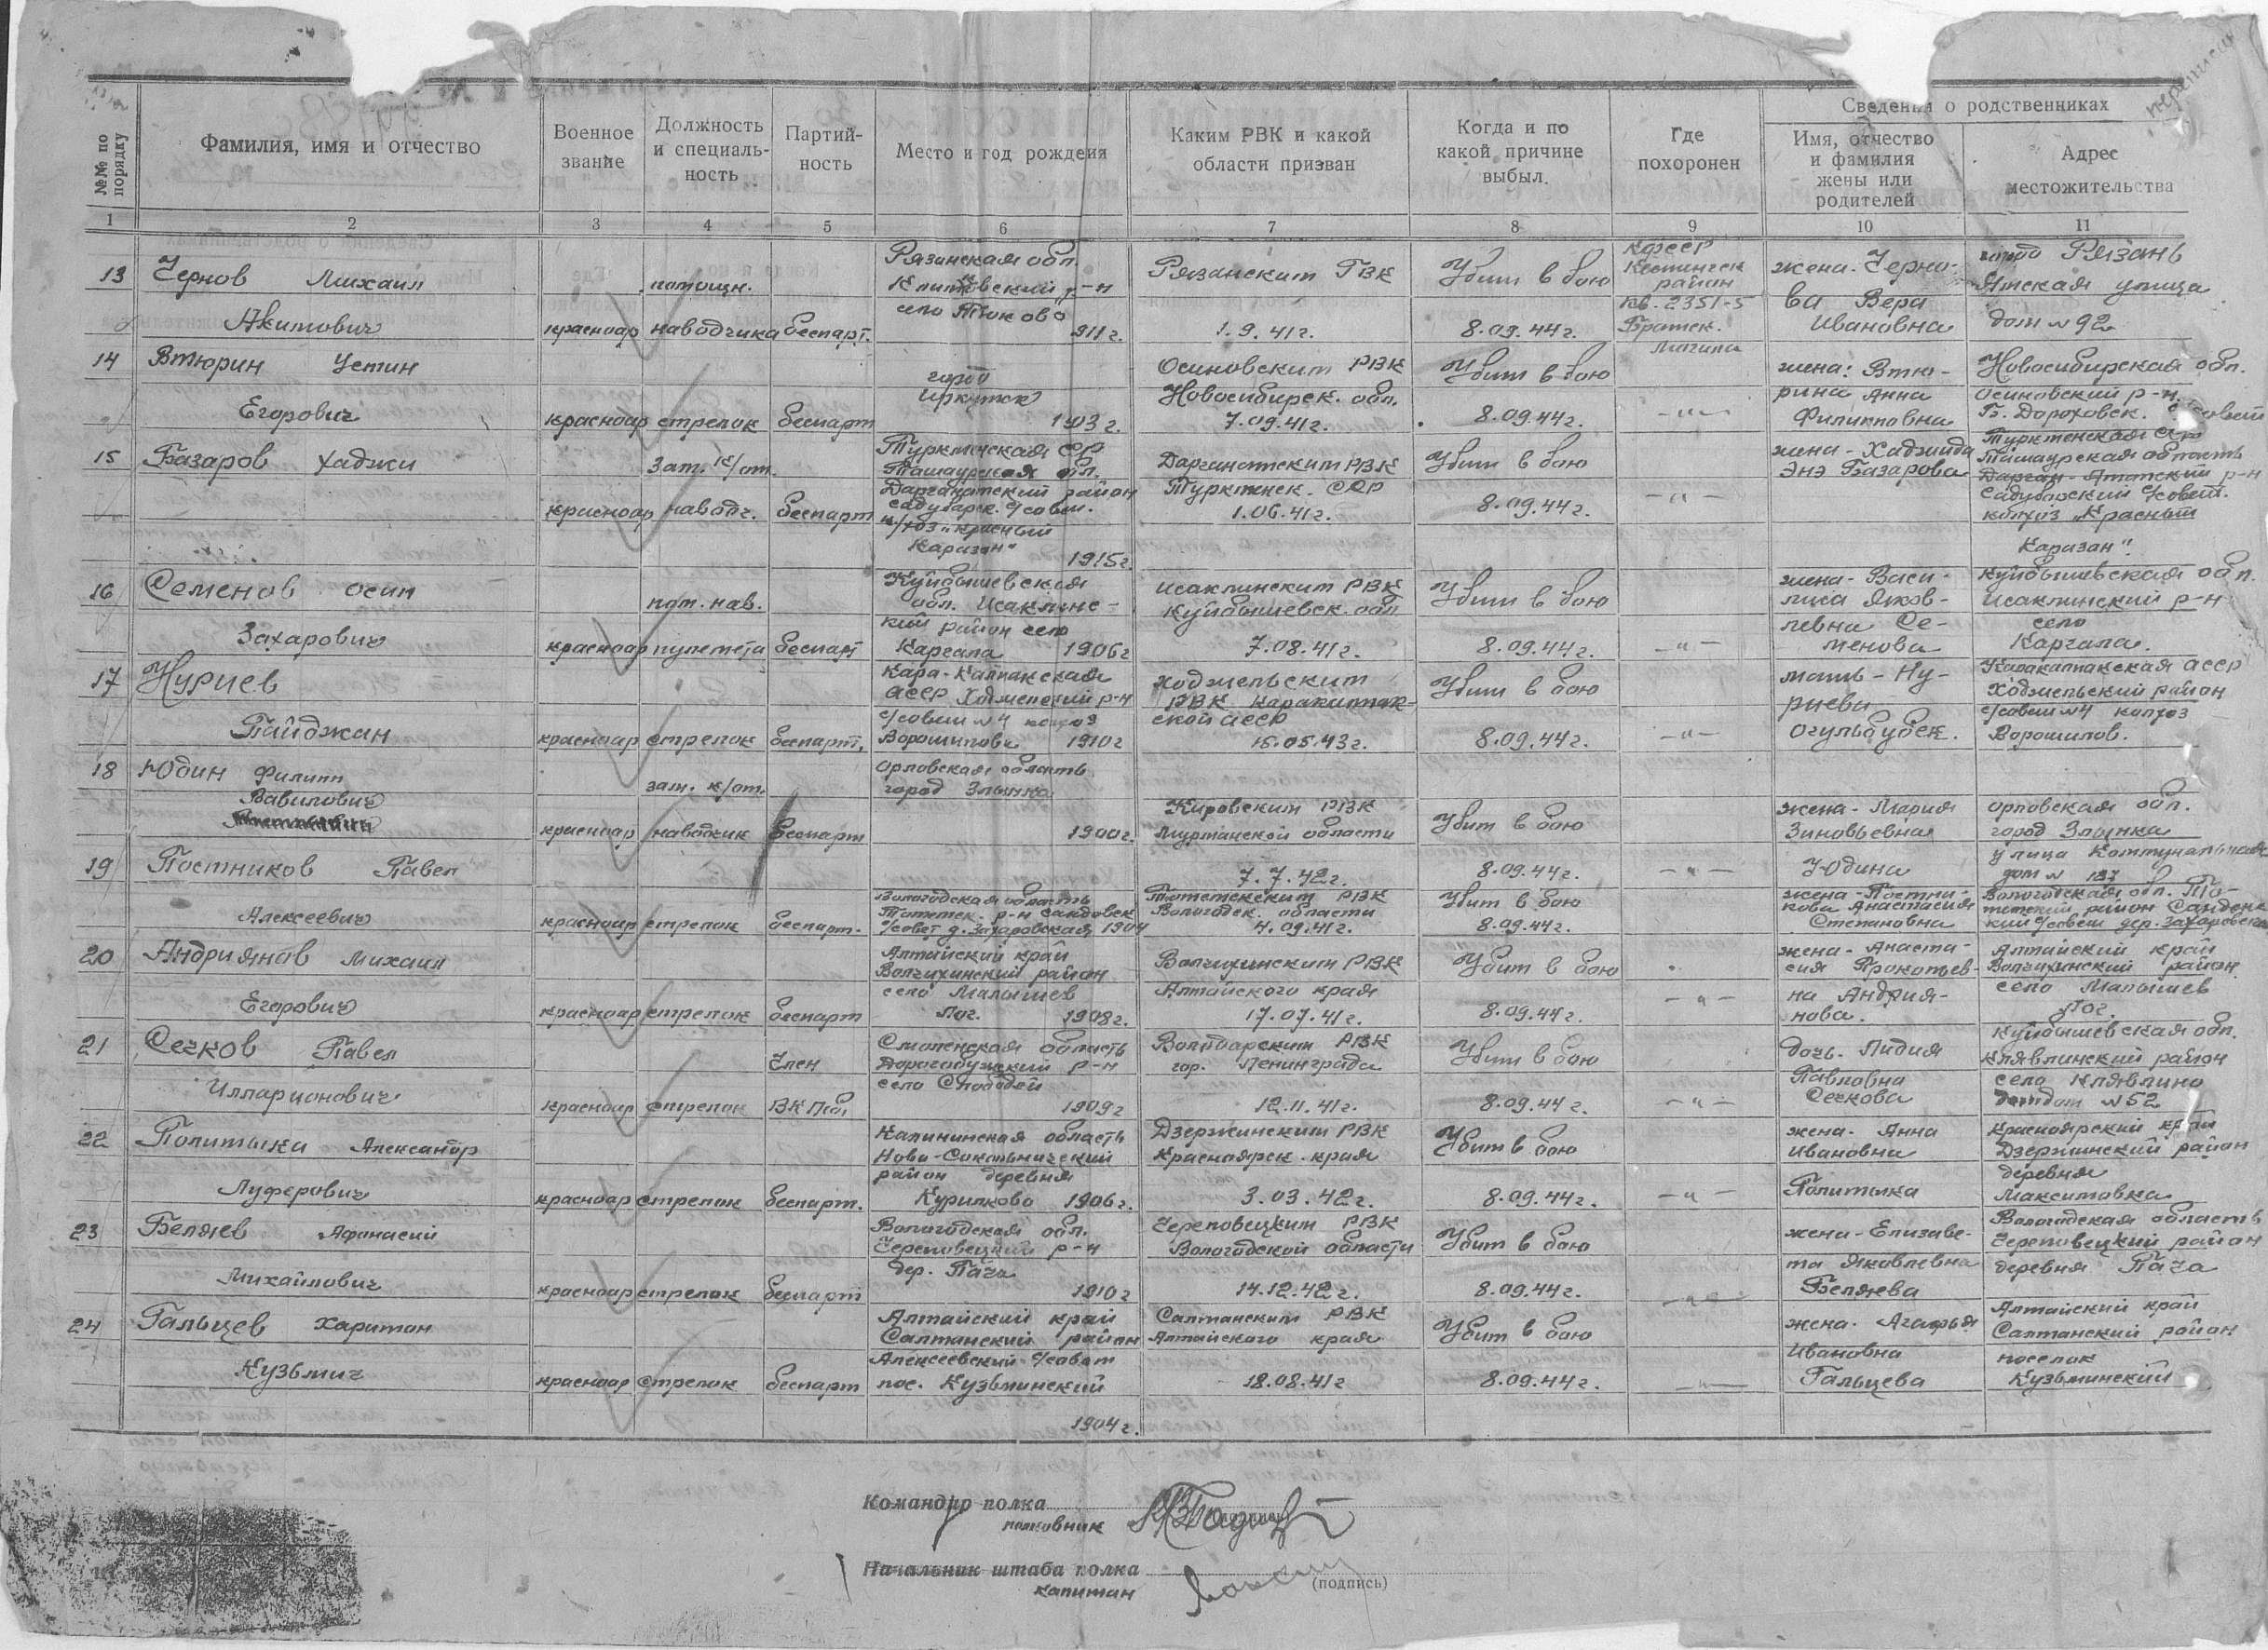 переписан
Сведения о родственниках
№№ по порядку
Фамилия, имя и отчество
Военное звание
Должность и специаль-ность
Партий-ность
Место и год рождеия
Каким РВК и какой области призван
Когда и по какой причине выбыл.
Где похоронен
Имя, отчество и фамилия жены или родителей
Адрес местожительства
1 2 3 4 5 6 7 8 9 10 11
13 Чернов Михаил Акимович
красноар
помощн. наводчика
беспарт.
Рязанская обл.
село Тюково
911 г.
Рязанским ГВК
1.9.41г.
Убит в бою
8.09.44г.
КФССР
район
кв. 2351-5
Братск.
могила
жена - Черно-
ва Вера
Ивановна
город Рязань
Ямская улица
дом № 92
14 Втюрин Устин
Егорович
красноар
стрелок
беспарт
город
Иркутск
1903 г.
Осиновским РВК
Новосибирск. обл.
7.09.41г.
Убит в бою
8.09.44г.
-"-
жена: Втю-
рина Анна
Филипповна
Новосибирская обл.
Осиновский р-н.
Б. Дороховск. с/совет
15 Базаров Хаджи
красноар
зам. к/от.
наводч.
беспарт
Туркменская ССР
Ташаузская обл.
Дарганатский район
Садуварск. с/совет.
к/хоз "Красный
Каризан"
1915г.
Дарганатским РВК
Туркменск. ССР
1.06.41г.
Убит в бою
8.09.44г.
-"-
жена - Хаджида
Энэ Базарова
Туркменская ССР
Ташаузская область
Дарган-Ататский р-н
Садубарский с/совет.
колхоз "Красный
Каризан".
16 Семенов Осип
Захарович
красноар
пом. нав.
пулемета
беспарт
Куйбышевская
обл. Исаклинс-
кий район село
Каргала 1906г
Исаклинским РВК
Куйбышевск. обл
7.08.41г.
Убит в бою
8.09.44г.
-"-
жена - Васи-
лиса Яков-
левна Се-
менова
Куйбышевская обл.
Исаклинский р-н
село
Каргала.
17 Нуриев
Пайджан
красноар
стрелок
беспарт.
Кара-Калпакская
АССР Ходжелский р-н
с/совет №4 колхоз
Ворошилова 1910г
Ходжельским
РВК Каракалпак-
ской АССР
15.05.43г.
Убит в бою
8.09.44г.
-"-
мать - Ну-
риева
Огульбубек.
Каракалпакская АССР
Ходжельский район
с/совет №4 колхоз
Ворошилов.
18 Юдин Филипп
Вавилович
красноар
зам. к/от.
наводчик
беспарт
Орловская область
город Злынка
1900г.
Кировским РВК
Мурманской области
7.7.42г.
Убит в бою
8.09.44г.
-"-
жена - Мария
Зиновьевна
Юдина
Орловская обл.
город Злынка
улица Коммунальная
дом № 137
19 Постников Павел
Алексеевич
красноар
стрелок
беспарт.
Вологодская область
Тотемск. р-н Сандовск
с/совет д. Захаровская 1904
Тотемским РВК
Вологодск. области
4.09.41г.
Убит в бою
8.09.44г.
жена - Постни-
кова Анастасия
Степановна
Вологодская обл. То-
темский район
с/совет дер. Захаровская
20 Андриянов Михаил
Егорович
красноар
стрелок
беспарт
Алтайский край
Волчихинский район
село Малышев
Лог. 1908г.
Волчихинским РВК
Алтайского края
17.07.41г.
Убит в бою
8.09.44г.
-"-
жена - Анаста-
сия Прокопьев-
на Андрия-
нова.
Алтайский край
Волчихинский район
село Малышев
Лог.
21 Сечков Павел
Илларионович
красноар
стрелок
Член
ВКП(б)
Смоленская область
Дорогобужский р-н
село
1909г
Володарским РВК
гор. Ленинграда
12.11.41г.
Убит в бою
8.09.44г.
-"-
дочь - Лидия
Павловна
Сечкова
Куйбышевская обл.
Клявлинский район
село Клявлино
детдом №52
22 Политыка Александр
Луферович
красноар
стрелок
беспарт.
Калининская область
Ново-Сокольнический
район деревня
Курилково 1906г.
Дзержинским РВК
Красноярск. края
3.03.42г.
Убит в бою
8.09.44г.
-"-
жена - Анна
Ивановна
Политыка
Красноярский край
Дзержинский район
деревня
Максимовка
23 Беляев Афанасий
Михайлович
красноар
стрелок
беспарт
Вологодская обл.
Череповецкий р-н
дер. Пача
1910г
Череповецким РВК
Вологодской области
14.12.42г.
Убит в бою
8.09.44г.
-"-
жена - Елизаве-
та Яковлевна
Беляева
Вологодская область
Череповецкий район
деревня Пача
24 Гальцев Харитон
Кузьмич
красноар
стрелок
беспарт
Алтайский край
Салтанский район
Алексеевский с/совет
пос. Кузьминский
1904г.
Салтанским РВК
Алтайского края
18.08.41г
Убит в бою
8.09.44г.
-"-
жена - Агафья
Ивановна
Гальцева
Алтайский край
Салтанский район
поселок
Кузьминский
Командир полка
полковник
Начальник штаба полка
капитан
(подпись)